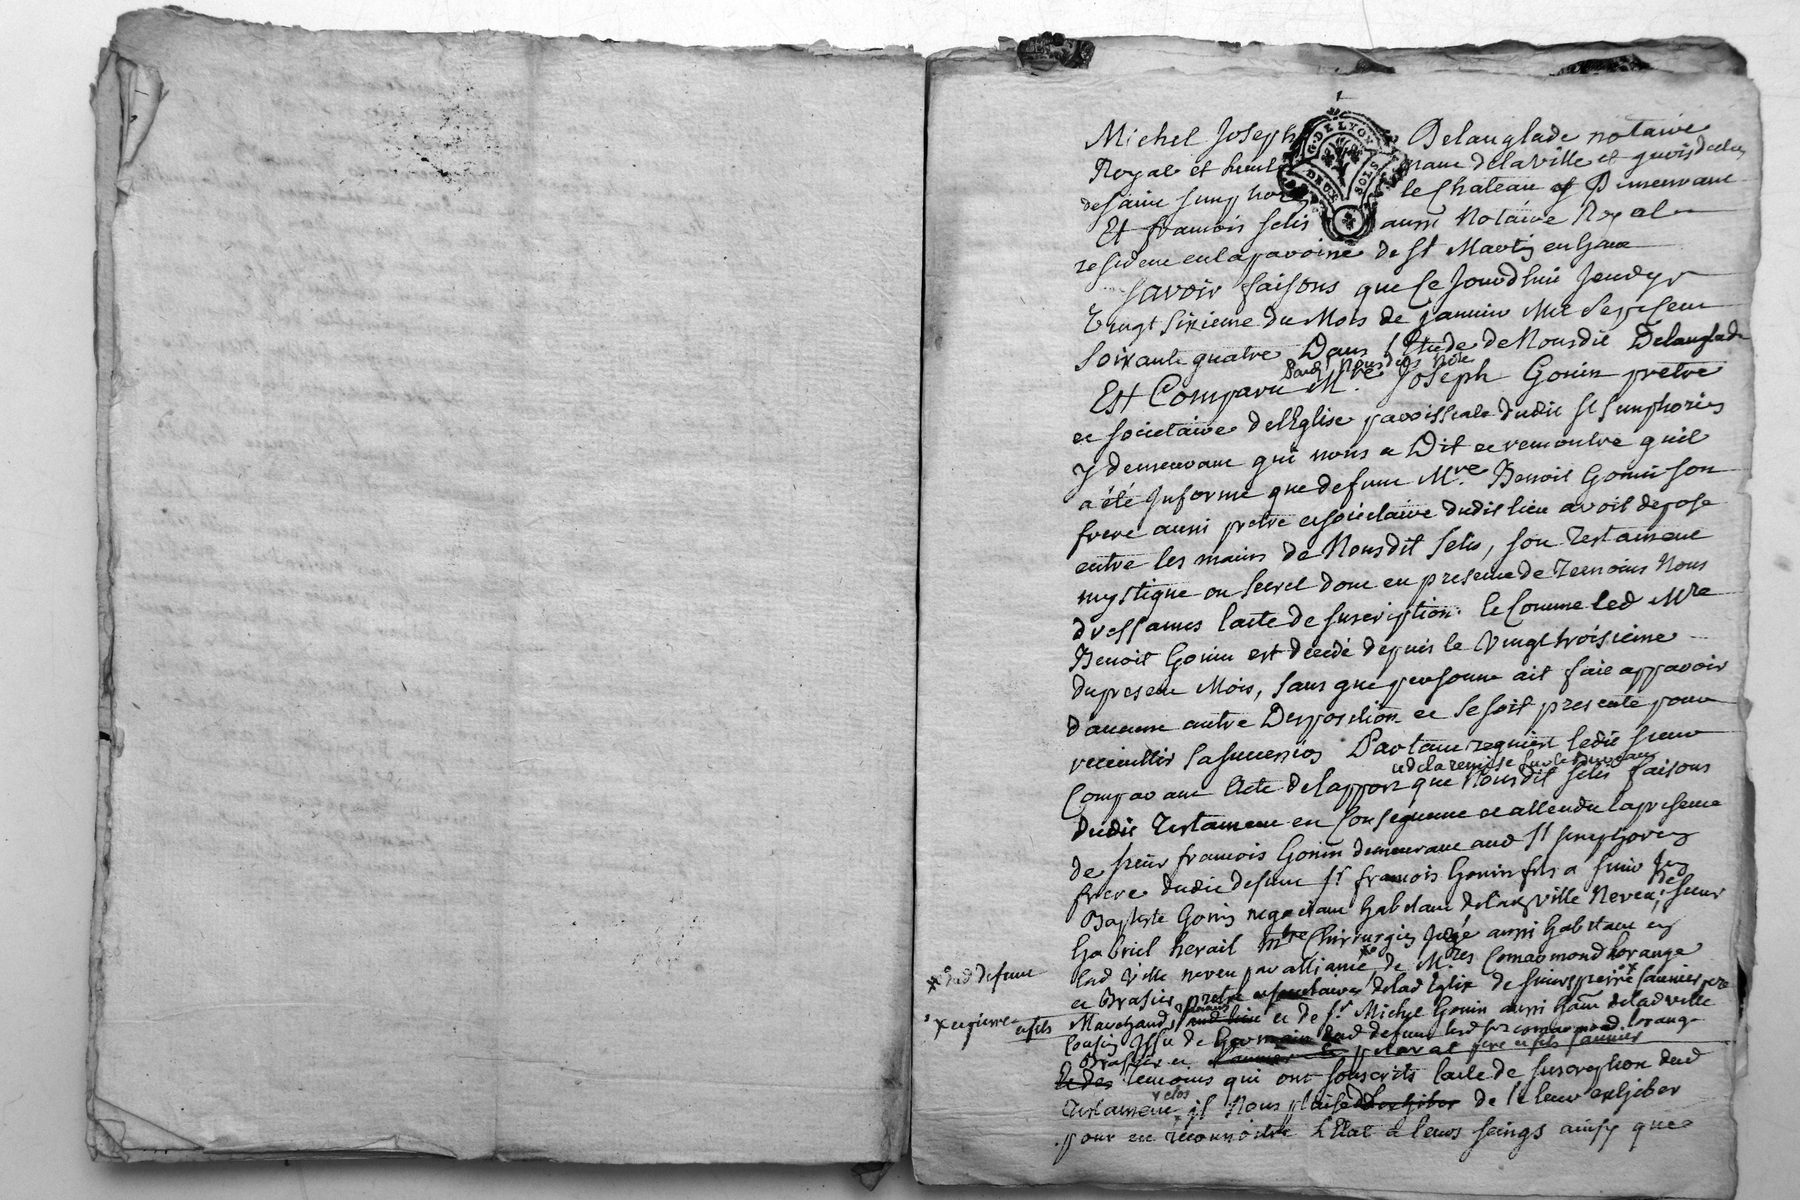 Michel Joseph Delanglade notaire
G. DE LYON
DEUX SOLS
Royal et hered
de la ville et
de saint simpho le Chateau y Demeurant
Et francois selis aussi Notaire Royal
residant en la parroisse de St Martin en haux
savoir faisons que ce Jourdhui Jeudy
Vingt sixieme du Mois de Janvier Mil sept cent
soixante quatre Dans l'Etude de Nousdit Delanglade
Pard. Nousdits Nores
Est Comparu Mre Joseph Gonin pretre
et societaire de l'Eglise parroissiale dudit St simphorien
y demeurant qui nous a Dit et remontre quil
a été Informé que defunt Mre Benoit Gonin son
frere aussi pretre et societaire dudit lieu avoit deposé
entre les mains de Nousdit selis, son testament
mystique ou secret dont en presence de temoins Nous
dressames l'acte de suscription. et Comme led Mre
Benoit Gonin est decedé depuis le Vingt troisieme
du present Mois, sans que personne ait fait apparoir
d'aucune autre Disposition et se soit presenté pour
recueillir sa succession Partant requiert ledit sieur
et de la remise sur le bureau
Comparant Acte de l'apport que Nousdit selis faisons
dudit testament en consequence et attendu la presence
de sieur francois Gonin demeurant aud St simphorien
frere dudit defunt sr francois Gonin fils a feu Jean
Baptiste Gonin negotiant habitant de lad ville Neveu, de sieur
Gabriel herail Mtre Chirurgien Juré aussi habitant en
lad ville neveu par alliance x de Mres Comarmond Lorange
x dud defunt
et Brasier pretre et societaires de lad Eglise de sieurs pierre x saunier pere
x et pierre et fils
Marchands aud lieu et de sr Michel Gonin aussi habt de lad ville
Cousin Issu de Germain dud defunt lesd srs comarmond Lorange
Brasier et pere et fils saunier
et des temoins qui ont souscrits l'acte de suscription dud
testament, il Nous plaise d'exhiber de le leur exhiber
pour en reconnoitre l'Etat et leurs seings ainsy que